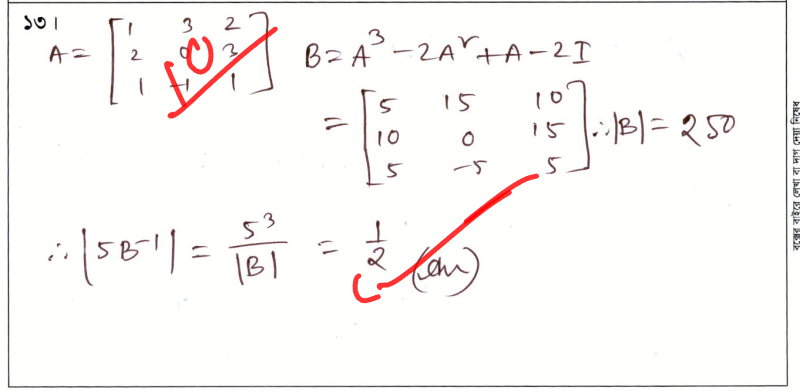 ১৩।
A = [1 3 2; 2 0 3; 1 -1 1] B = A³ - 2A² + A - 2I
= [5 15 10; 10 0 15; 5 -5 5] ∴ |B| = 250
∴ |5B⁻¹| = 5³/|B| = 1/2 (Ans)
10
বক্সের বাইরে লেখা বা দাগ দেয়া নিষেধ